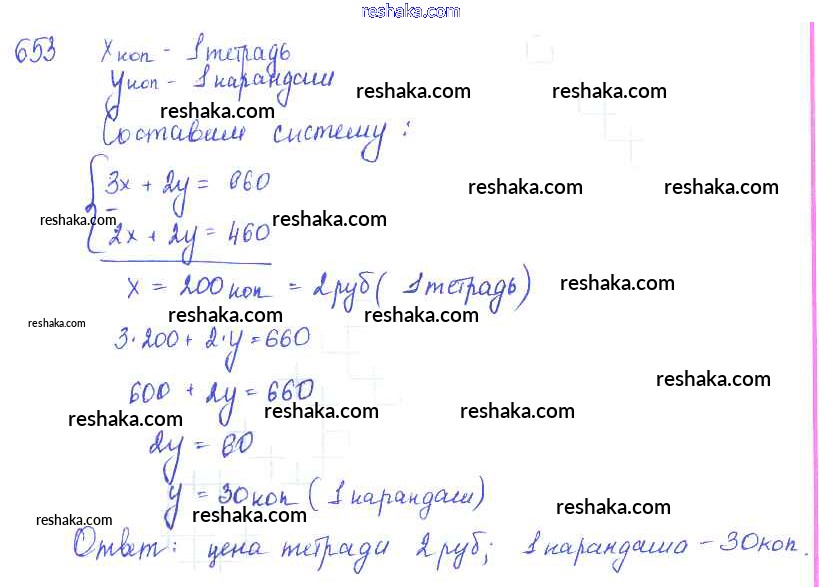 reshaka.com
653 x коп - 1 тетрадь
y коп - 1 карандаш
reshaka.com reshaka.com
reshaka.com
Составим систему:
3x + 2y = 660
reshaka.com reshaka.com
-
reshaka.com reshaka.com
2x + 2y = 460
x = 200 коп = 2 руб ( 1 тетрадь)
reshaka.com
reshaka.com reshaka.com
reshaka.com
3·200 + 2·y = 660
reshaka.com
600 + 2y = 660
reshaka.com reshaka.com reshaka.com
2y = 60
y = 30 коп ( 1 карандаш)
reshaka.com
reshaka.com reshaka.com
Ответ: цена тетради 2 руб; 1 карандаша - 30 коп.